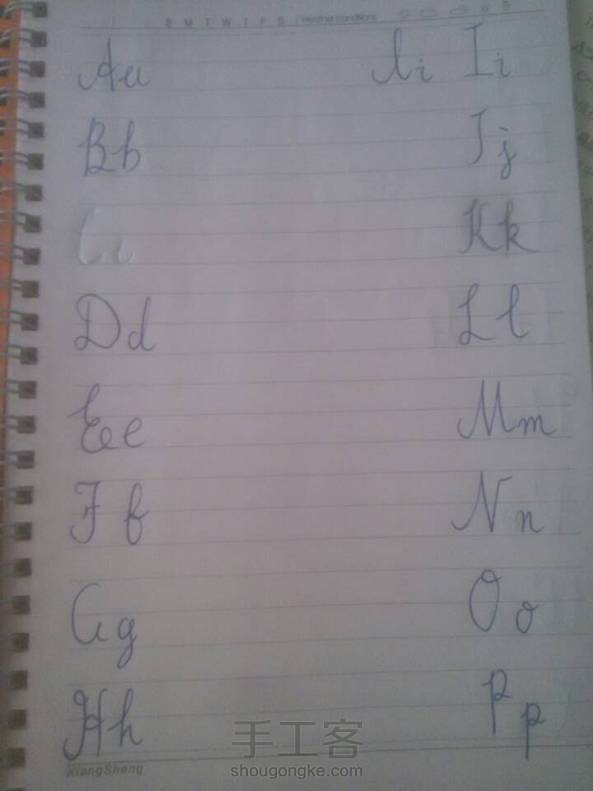 S M T W T F S
Aa Ii Ii
Bb Jj
Cc
Kk
Dd Ll
Ee Mm
Ff Nn
Gg Oo
Hh Pp
XiangSheng
手工客
shougongke.com